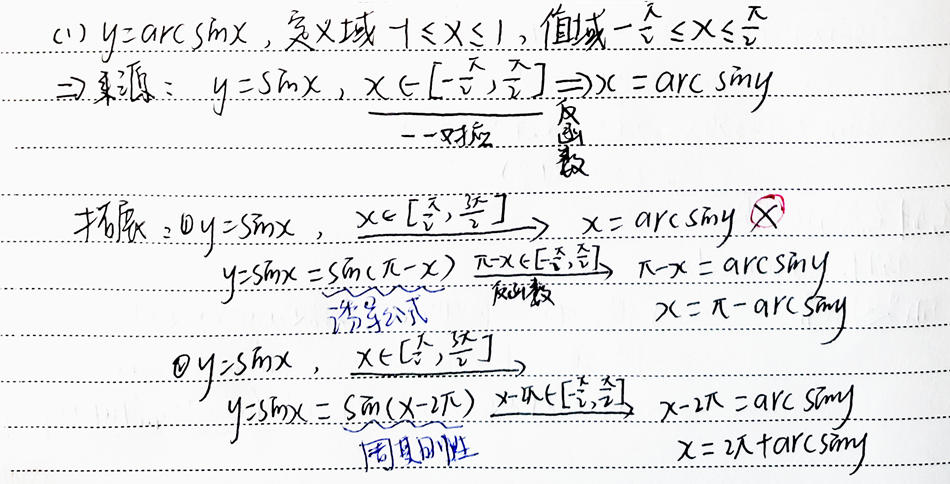 (1) y=arcsinx,定义域-1≤x≤1,值域-π/2≤x≤π/2
⇒来源: y=sinx, x∈[-π/2,π/2]⇒x=arcsiny
一一对应 反函数
拓展:①y=sinx, x∈[π/2,3π/2]→ x=arcsiny ⊗
y=sinx=sin(π-x) π-x∈[-π/2,π/2]→ π-x=arcsiny
诱导公式 反函数 x=π-arcsiny
②y=sinx, x∈[π/2,5π/2]→
y=sinx=sin(x-2π) x-2π∈[-π/2,π/2]→ x-2π=arcsiny
周期性 x=2π+arcsiny